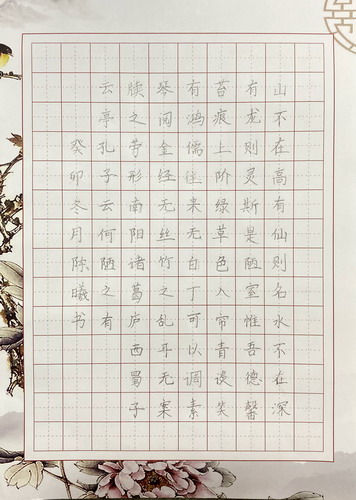 山不在高有仙则名水不在深
有龙则灵斯是陋室惟吾德馨
苔痕上阶绿草色入帘青谈笑
有鸿儒往来无白丁可以调素
琴阅金经无丝竹之乱耳无案
牍之劳形南阳诸葛庐西蜀子
云亭孔子云何陋之有
癸卯冬月陈曦书